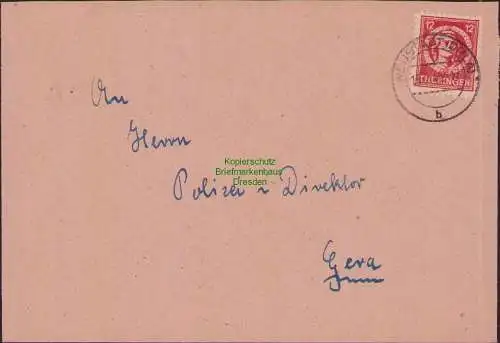 12 12
THÜRINGEN
b
An
Herrn
Kopierschutz
Briefmarkenhaus
Dresden
Polizei Direktor
Gera